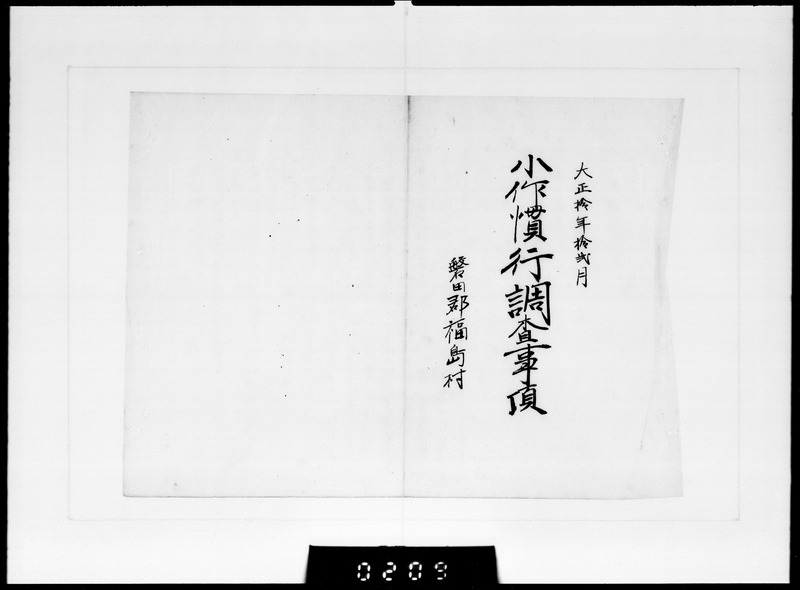 大正拾年拾弐月
小作慣行調査事項
磐田郡福島村
0209